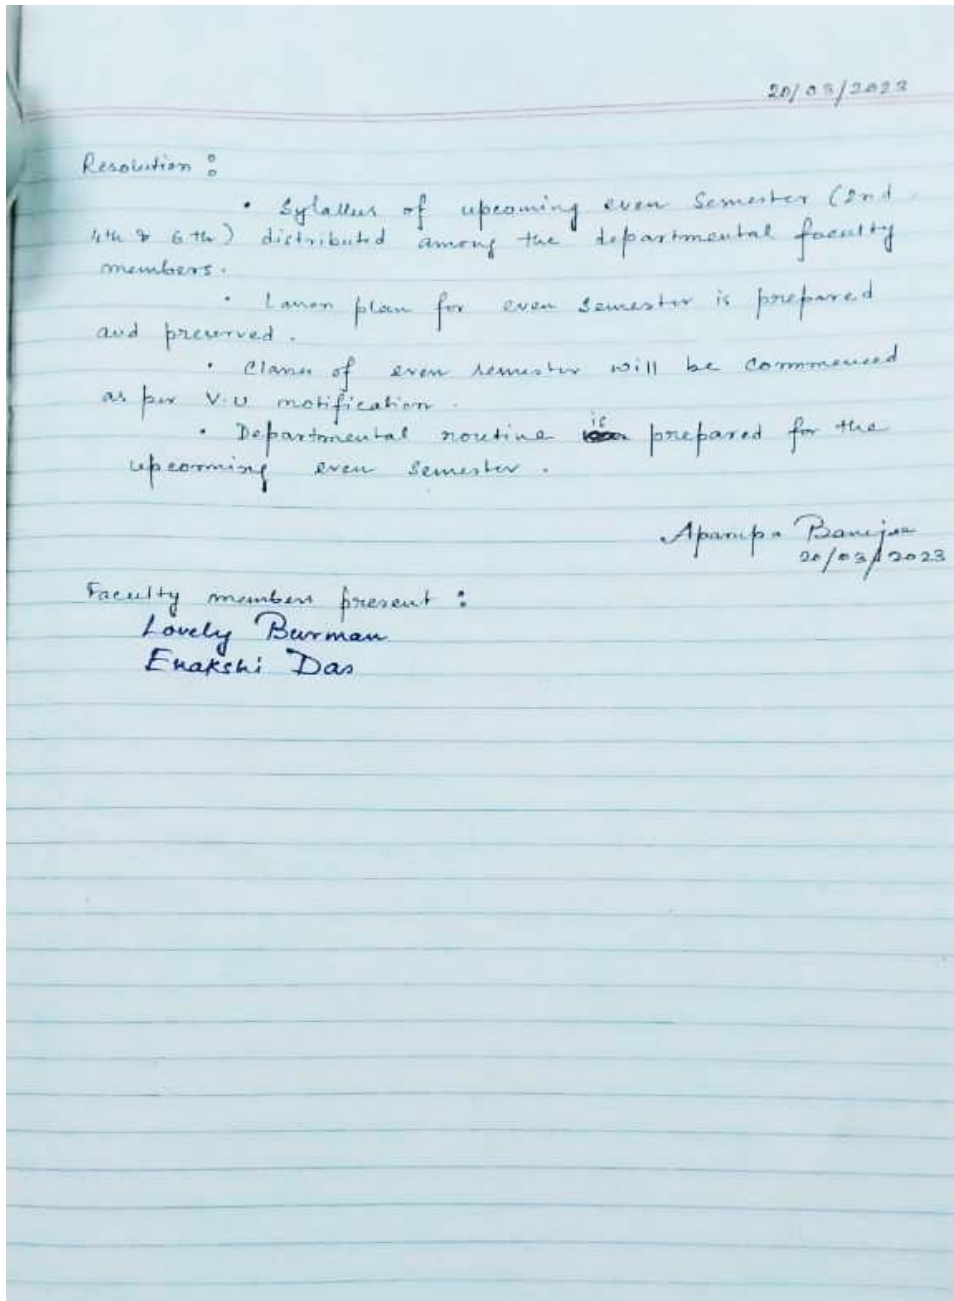 20/03/2023
Resolution :
• Syllabus of upcoming even Semester (2nd
4th & 6th) distributed among the departmental faculty
members.
• Lesson plan for even semester is prepared
and preserved.
• Classes of even semester will be commenced
as per V.U notification.
• Departmental routine is prepared for the
upcomming even semester.
Banerjee
20/03/2023
Faculty members present :
Lovely Burman
Enakshi Das